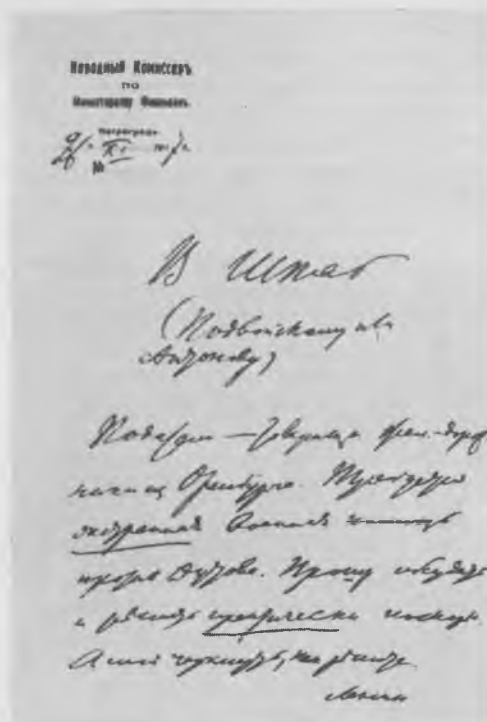 Народный Комиссаръ
по
Министерству Финансовъ.
Петроградъ
26/XI 1917 г.
№
В Штаб
(Подвойскому или
Антонову)
Податели — товарищи жел.-дорож
ники из Оренбурга. Требуется
экстренная военная помощь
против Дутова. Прошу обсудить
и решить практически поскорее.
А мне черкнуть, как решите.
Ленин